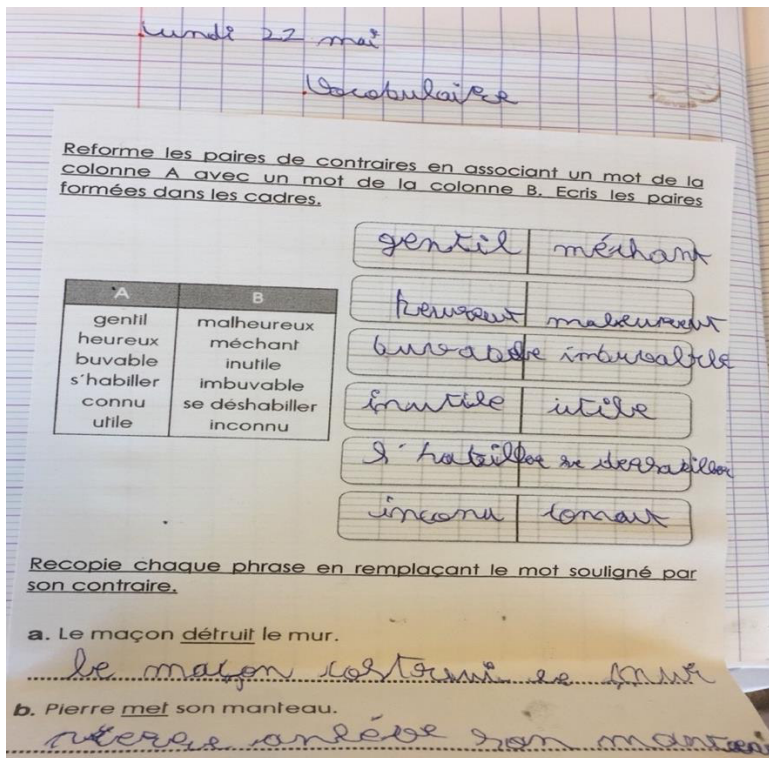 lundi 22 mai
Vocabulaire
Reforme les paires de contraires en associant un mot de la
colonne A avec un mot de la colonne B. Ecris les paires
formées dans les cadres.
gentil méchant
A B
gentil malheureux
heureux méchant
buvable inutile
s'habiller imbuvable
connu se déshabiller
utile inconnu
inutile utile
s'habiller se deshabiller
inconu
Recopie chaque phrase en remplaçant le mot souligné par
son contraire.
a. Le maçon détruit le mur.
le maçon le mur
b. Pierre met son manteau.
anléve son